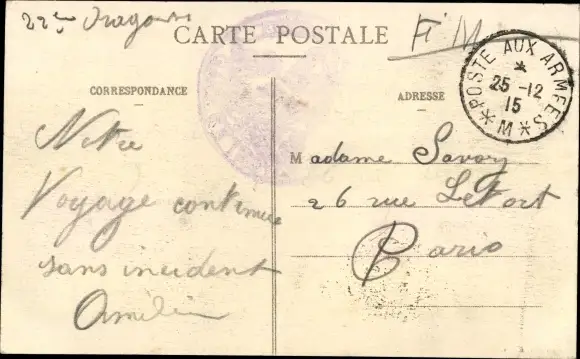 22e Dragons
CARTE POSTALE
F M
POSTE AUX ARMÉES
25 -12
15
* M *
CORRESPONDANCE
ADRESSE
Notre
Voyage continue
sans incident
Madame Savory
26 rue Lefort
Paris